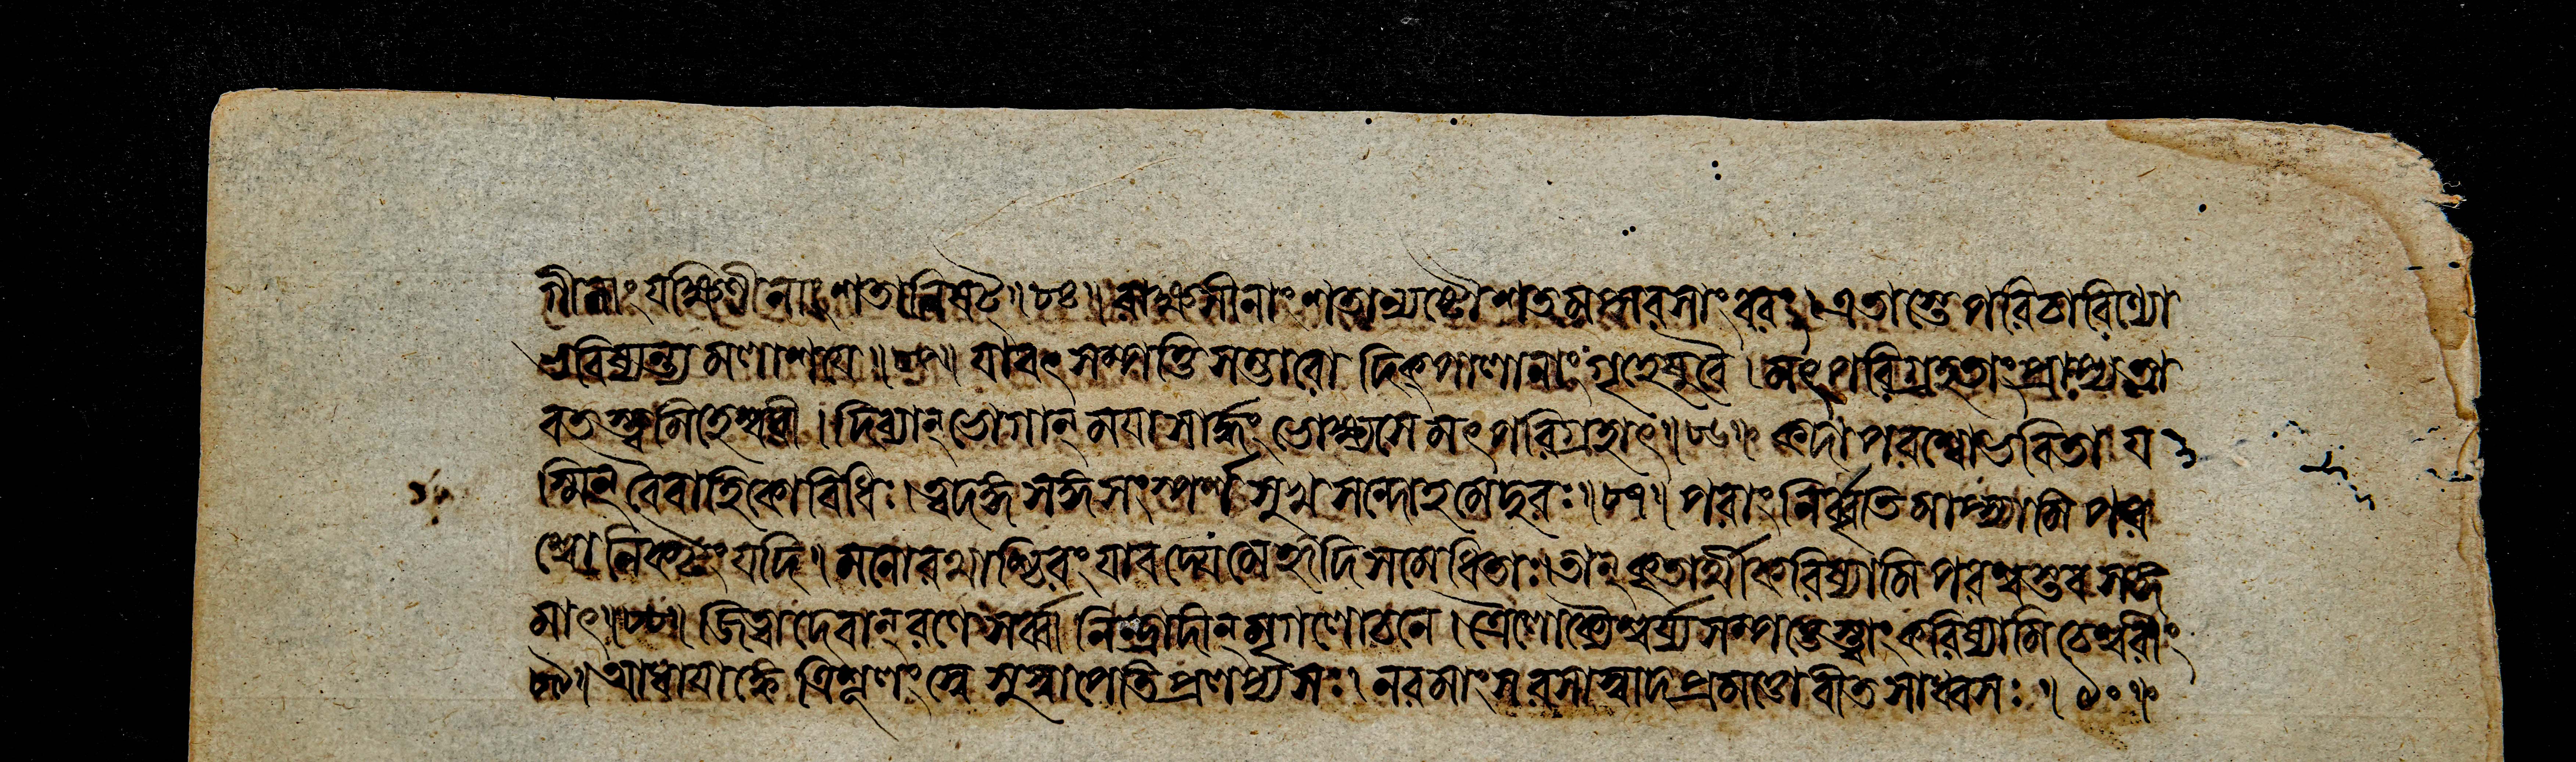 গীনাং যক্ষিণীনাং শতানিষট্॥৮৪॥ রাক্ষসীনাং শতান্যষ্টৌ শতমপ্সরসাং বরং। এতাস্তে পরিচারিণ্যো
ভবিষ্যন্ত্যমলাশয়ে॥৮৫॥ যাবৎ সম্পত্তিসম্ভারো দিক্পালানাং গৃহেষু বৈ। মৎপরিগ্রহতাং প্রাপ্য তা
বতস্ত্বমিহেশ্বরী। দিব্যান্ ভোগান্ ময়াসার্দ্ধং ভোক্ষ্যসে মৎপরিগ্রহাৎ॥৮৬॥ কদা পরশ্বো ভবিতা য
স্মিন্ বৈবাহিকো বিধিঃ। ত্বদঙ্গসঙ্গসংস্পর্শ সুখসন্দোহমেদুরঃ॥৮৭॥ পরাং নির্ব্বৃতিমাপ্স্যামি পর
শ্বো নিকটং যদি। মনোরথাশ্চিরং যাবদ্যে মে হৃদি সমেধিতাঃ। তান্ কৃতার্থীকরিষ্যামি পরশ্বস্তব সঙ্গ
মাৎ॥৮৮॥ জিত্বা দেবান্ রণে সর্ব্বানিন্দ্রাদীন্ মৃগলোচনে। ত্রৈলোক্যৈশ্বর্য্যসম্পত্তেস্ত্বাং করিষ্যামি চেশ্বরীং
৮৯॥ আধায়াঙ্কে ত্রিশূলং স্বে সুষ্বাপেতি প্রলপ্য সঃ। নরমাংসরসাস্বাদপ্রমত্তো বীতসাধ্বসঃ॥৯০॥